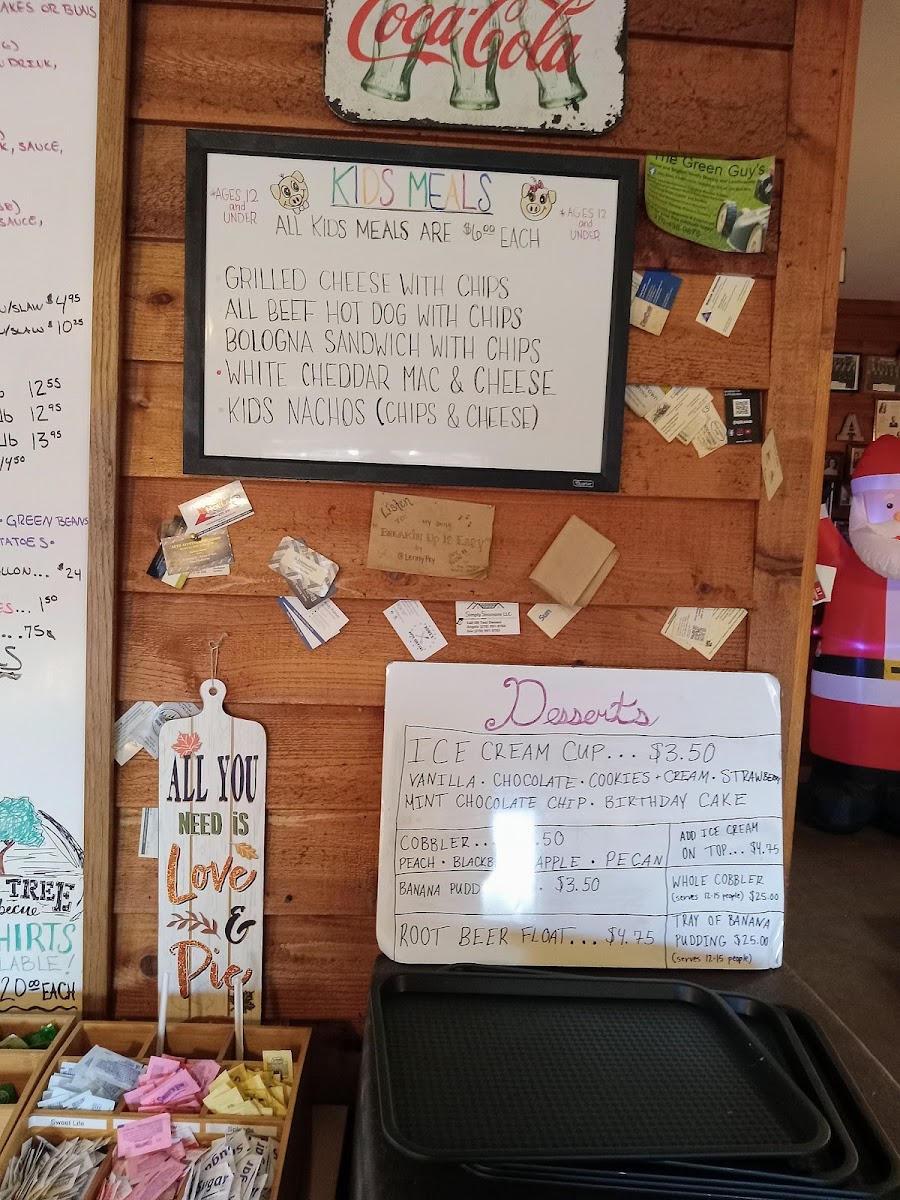 AKES OR BUNS
DRINK,
, SAUCE,
SAUCE,
W/SLAW $4.95
W/SLAW $10.25
12.55
lb 12.95
lb 13.95
14.50
• GREEN BEANS
TATOES •
LLON... $24
ES... 1.50
....75¢
TREE
HIRTS
LABLE!
20.00 EACH
Coca-Cola
KIDS MEALS
*AGES 12
and
UNDER
*AGES 12
and
UNDER
ALL KIDS MEALS ARE $6.00 EACH
GRILLED CHEESE WITH CHIPS
ALL BEEF HOT DOG WITH CHIPS
BOLOGNA SANDWICH WITH CHIPS
• WHITE CHEDDAR MAC & CHEESE
KIDS NACHOS (CHIPS & CHEESE)
The Green Guy's
Listen
TO my song
BREAKIN Up is Easy
by
@LennyPey
Simply Seasons LLC
Sun
ALL YOU
NEED IS
Love
&
Pie
Desserts
ICE CREAM CUP... $3.50
VANILLA • CHOCOLATE • COOKIES + CREAM • STRAWBERRY
MINT CHOCOLATE CHIP • BIRTHDAY CAKE
COBBLER... .50
PEACH • BLACKB APPLE • PECAN
ADD ICE CREAM
ON TOP... $4.75
BANANA PUDD . $3.50
WHOLE COBBLER
(serves 12-15 people) $25.00
ROOT BEER FLOAT... $4.75
TRAY OF BANANA
PUDDING $25.00
(serves 12-15 people)
Sweet Life
Sugar